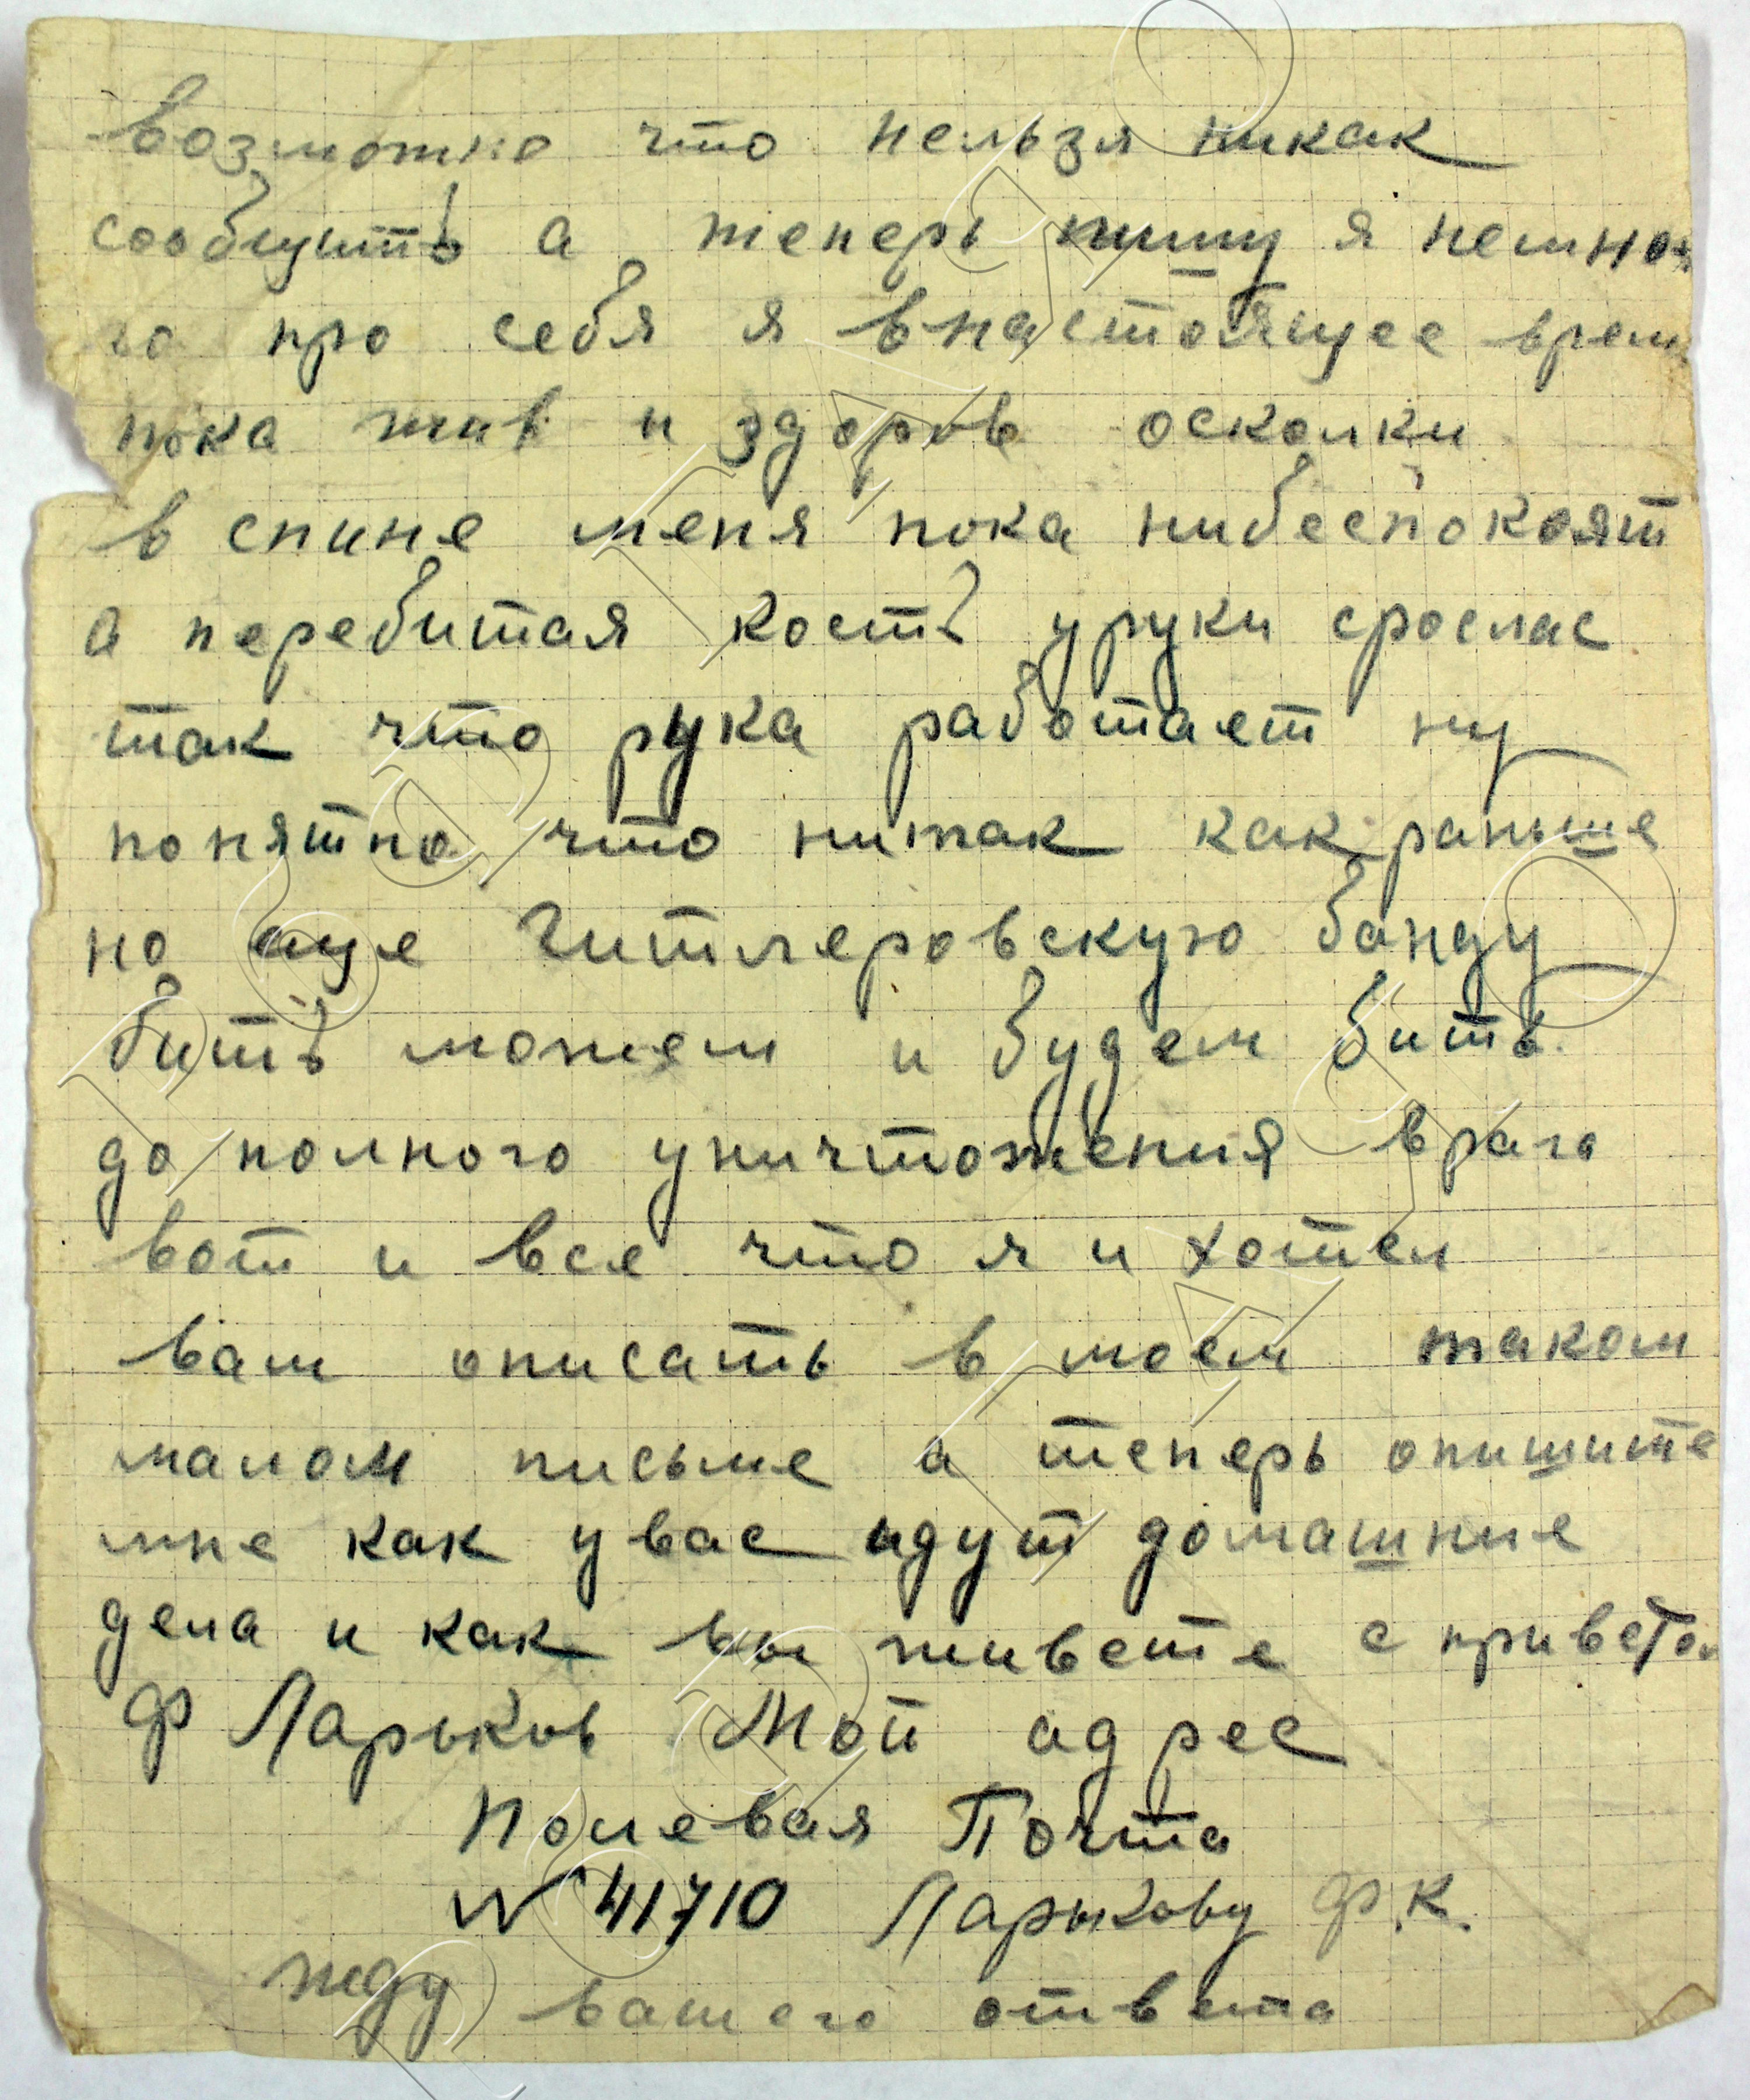 возможно что нельзя никак
сообщить а теперь пишу я немно-
го про себя я внастоящее врем
пока жив и здоров осколки
в спине меня пока нибеспокоят
а перебитая кость уруки срослас
так что рука работает ну
понятно что нитак как раньше
но еще Гитлеровскую банду
бить можем и будем бить
до полного уничтожения врага
вот и все что я и хотел
вам описать в моем таком
малом письме а теперь опишите
мне как увас идут домашние
дела и как вы живете с приветом
Ф Ларьков Мой адрес
Полевая Почта
№ 41710 Ларькову Ф.К.
жду вашего ответа